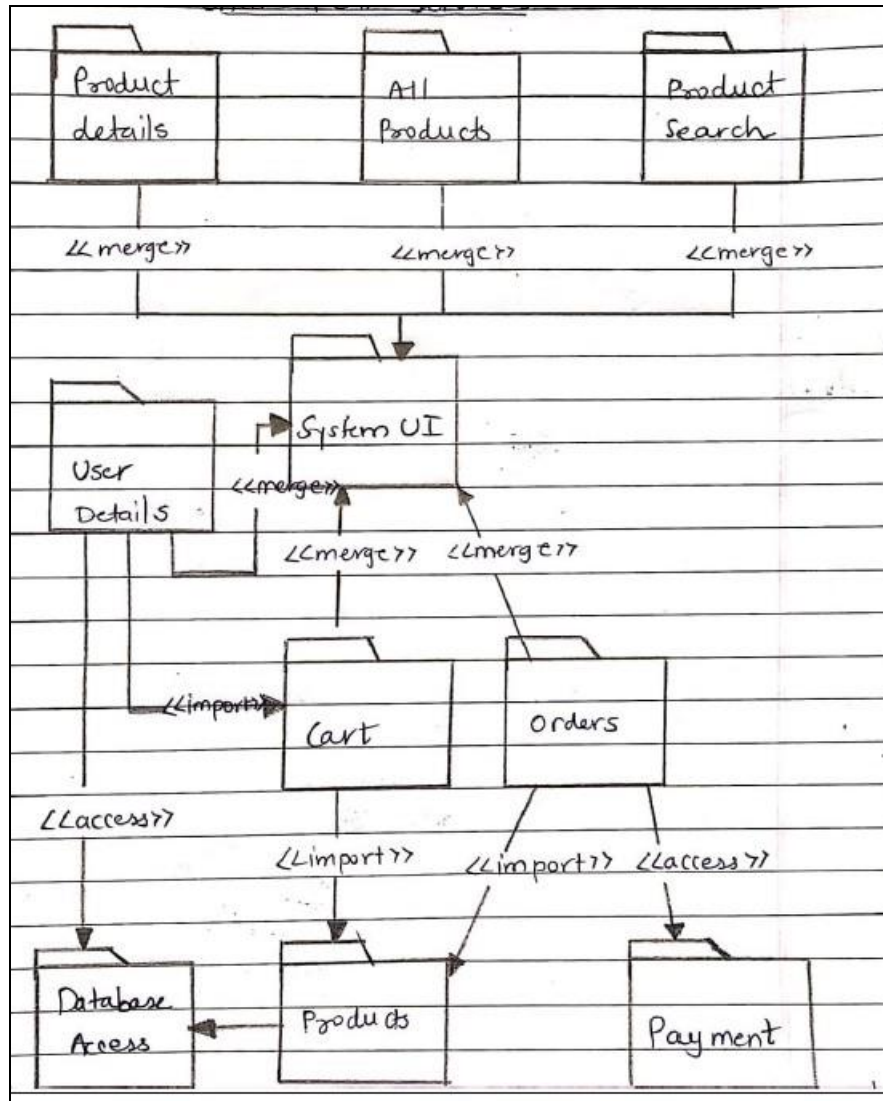 Product
details
All
Products
Product
Search
<<merge>>
<<merge>>
<<merge>>
System UI
User
Details
<<merge>>
<<merge>>
<<merge>>
<<import>>
Cart
Orders
<<access>>
<<import>>
<<import>>
<<access>>
Database
Access
Products
Payment